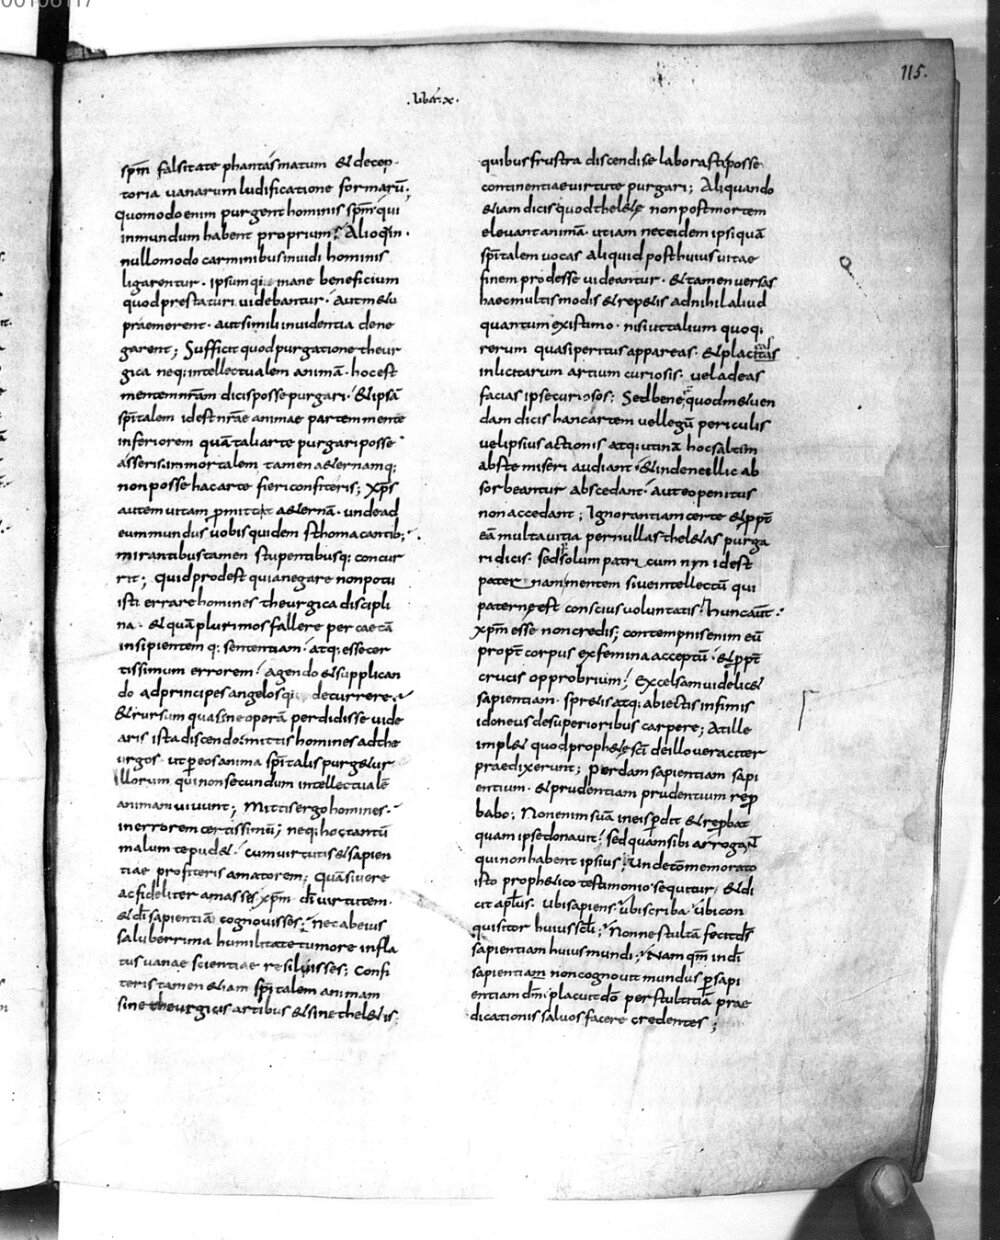 00106117
115.
.lib&#x304;.x.
sp̄m falsitate phantasmatum & decep
toria uanarum ludificatione formarū;
quomodo enim purgent hominis sp̄m qui
inmundum habent proprium? Alioqin
nullomodo carminibus inuidi hominis
ligarentur. ipsumq; inane beneficium
quod prestaturi uidebantur. aut m&u
praemerent. aut simili inuidentia dene
garent; Sufficit quod purgatione theur
gica neq; intellectualem animā. hoc est
mentem nr̄am dicis posse purgari. & ipsā
sp̄italem id est nr̄ae animae partem mente
inferiorem quā tali arte purgari posse
asseris. inmortalem tamen a&ernamq;
non posse hac arte fieri confiteris; Xp̄s
autem uitam pmittit a&ernā. unde ad
eum mundus uobis quidem stomacantib;
mirantibus tamen stupentibusq; concur
rit; quid prodest quia negare non potu
isti errare homines theurgica discipli
na. & quā plurimos fallere per caecā
insipientemq; sententiam. atq; esse cer
tissimum errorem. agendo & supplican
do ad principes angelosq; decurrere.
& rursum quasi ne operā perdidisse uide
aris ista discendo. mittis homines ad the
urgos. ut p eos anima sp̄italis purg&ur
illorum qui non secundum intellectualē
animam uiuunt; Mittis ergo homines
in errorem certissimū; neq; hoc tantū
malum te pud&. cum uirtutis & sapien
tiae profiteris amatorem; quā si uere
ac fideliter amasses. xp̄m dī uirtutem
& dī sapientiā cognouisses. nec ab eius
saluberrima humilitate tumore infla
tus uanae scientiae resiluisses; Confi
teris tamen &iam sp̄italem animam
sine theurgicis artibus & sine thel&is
quibus frustra discendis elaborasti posse
continentiae uirtute purgari; Aliquando
&iam dicis quod thel&e non post mortem
eleuant animā. ut iam nec eidem ipsi quā
sp̄italem uocas aliquid post huius uitae
finem prodesse uideantur. & tamen uersas
haec multis modis & rep&is ad nihil aliud
quantum existimo. nisi ut talium quoq;
rerum quasi peritus appareas. & placitas
inlicitarum artium curiosis. uel ad eas
facias ipse curiosos; Sed bene quod m&uen
dam dicis hanc artem uel legū periculis
uel ipsius actionis atq; utinā hoc saltim
abs te miseri audiant & inde ne illic ab
sorbeantur abscedant. aut eo penitus
non accedant; Ignorantiam certe & ppt̄
eā multa uitia per nullas thel&as purga
ri dicis. sed solum patricum nyn id est
paternam mentem siue intellectū qui
paternę est conscius uoluntatis. hunc aut̄
xp̄m esse non credis; contempnis enim eū
propt̄ corpus ex femina acceptū. & ppt̄
crucis opprobrium; excelsam uidelic&
sapientiam. spr&is atq; abiectis infimis
idoneus de superioribus carpere; At ille
impl& quod proph&e scī de illo ueraciter
praedixerunt; perdam sapientiam sapi
entium. & prudentiam prudentium rep
babo; Non enim suā in eis pdit & repbat
quam ipse donauit. sed quam sibi arrogant
qui non habent ipsius; Unde cōmemorato
isto proph&ico testimonio sequitur. & di
cit apłus. Ubi sapiens. ubi scriba. ubi con
quisitor huius scłi; Nonne stultā fecit d̄s
sapientiam huius mundi; Nam qm̄ in dī
sapientiam non cognouit mundus p sapi
entiam dm̄. placuit dō per stultitiā prae
dicationis saluos facere credentes;